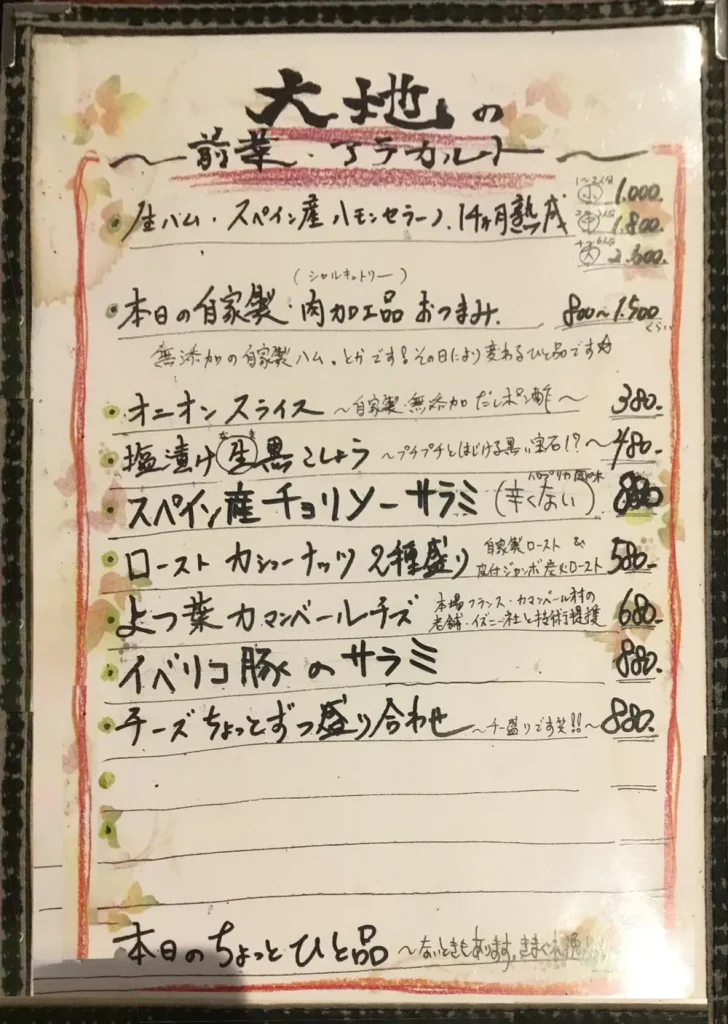 大地の
〜前菜・アラカルト〜
・生ハム・スペイン産ハモンセラーノ.14ヶ月熟成 小 1.000.
中 1.800.
大 2.600.
(シャルキュトリー)
・本日の自家製・肉加工品おつまみ. 800〜1.500くらい
無添加の自家製ハム、とかです!その日により変わるひと品です☆
・オニオンスライス 〜自家製無添加だしポン酢〜 380.-
・塩漬け生黒こしょう 〜プチプチとはじける黒い宝石!?〜 480.-
・スペイン産チョリソーサラミ (辛くない) 880
・ローストカシューナッツ2種盛り 自家製ロースト& 580.-
皮付ジャンボ炭火ロースト
・よつ葉カマンベールチーズ 本場フランス・カマンベール村の 680.-
老舗・イズニー社と技術提携
・イベリコ豚のサラミ 880.
・チーズちょっとずつ盛り合わせ 〜チー盛りです笑!!〜 880.
本日のちょっとひと品 〜ないときもあります。きまぐれ